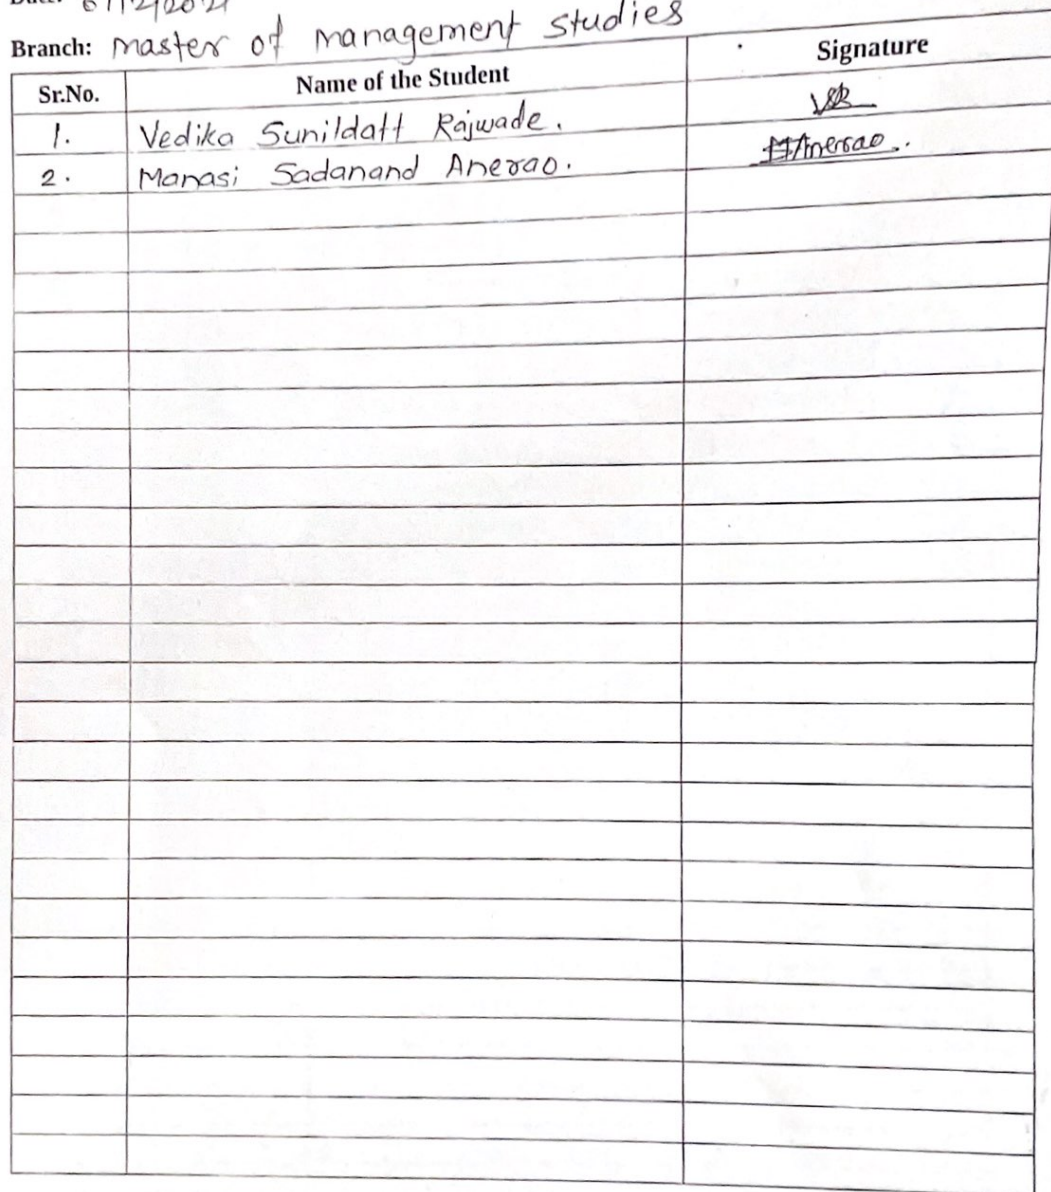 Branch: master of management studies
Sr.No. Name of the Student Signature
1. Vedika Sunildatt Rajwade.
2. Manasi Sadanand Anerao. MAnerao..